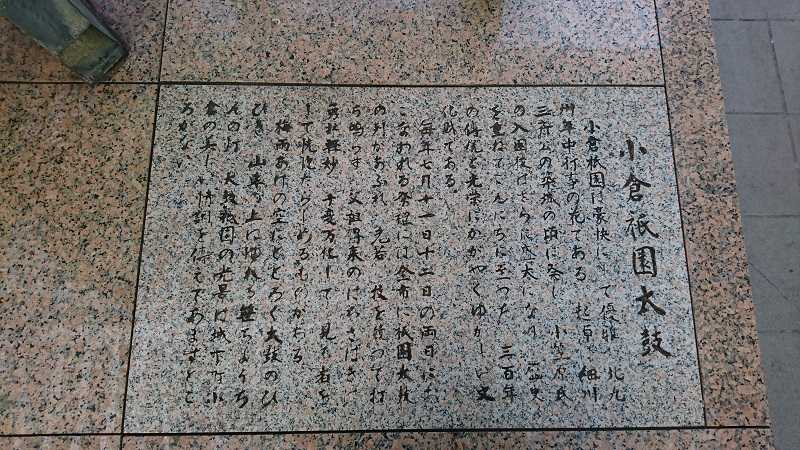 小倉祇園太鼓
小倉祇園は豪快にして優雅 北九
州年中行事の花である 起原 細川
三斎公の築城の頃に発し 小笠原氏
の入国後はさらに盛大になり 歴史
を重ねてこんにちに至った 三百年
の傳統と光栄にかがやくゆかしい文
化財である
毎年七月十一日十二日の両日にお
こなわれる祭禮には全市に祇園太鼓
の列があふれ 老若 技を競つて打
ち鳴らす 父祖傳来のばちさばきは
軽妙 千変万化して 見る者を
して恍惚たらしめるものがある
梅雨あけの空にとどろく太鼓のひ
びき 山車の上にゆれる笹ちようち
んの灯 太鼓祇園の光景は城下町小
倉の美しい情熱を伝えてあますとこ
ろがない